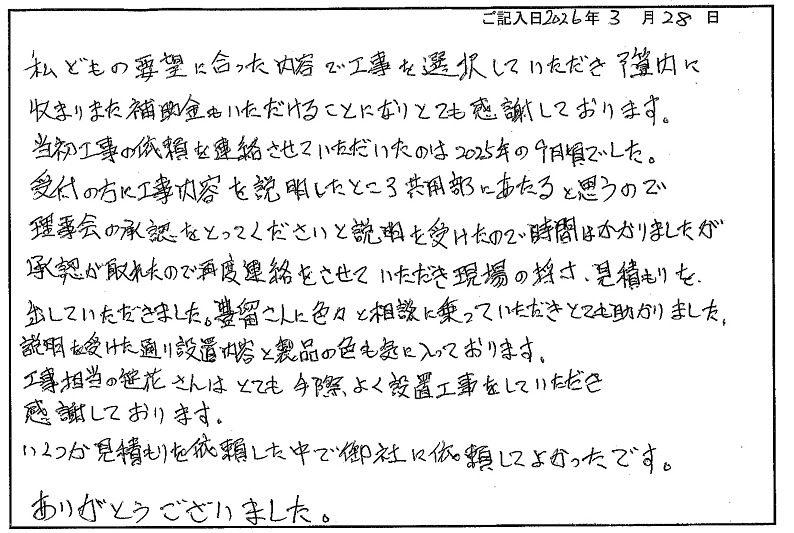 ご記入日2026年 3 月 28 日
私どもの要望に合った内容で工事を選択していただき予算内に
収まりまた補助金もいただけることになりとても感謝しております。
当初工事の依頼を連絡させていただいたのは2025年の9月頃でした。
受付の方に工事内容を説明したところ共用部にあたると思うので
理事会の承認をとってくださいと説明を受けたので時間はかかりましたが
承認が取れたので再度連絡をさせていただき現場の採寸、見積もりを
出していただきました。豊留さんに色々と相談に乗っていただきとても助かりました。
説明を受けた通り設置内容と製品の色も気に入っております。
工事担当の笹花さんはとても手際よく設置工事をしていただき
感謝しております。
いくつか見積もりを依頼した中で御社に依頼してよかったです。
ありがとうございました。